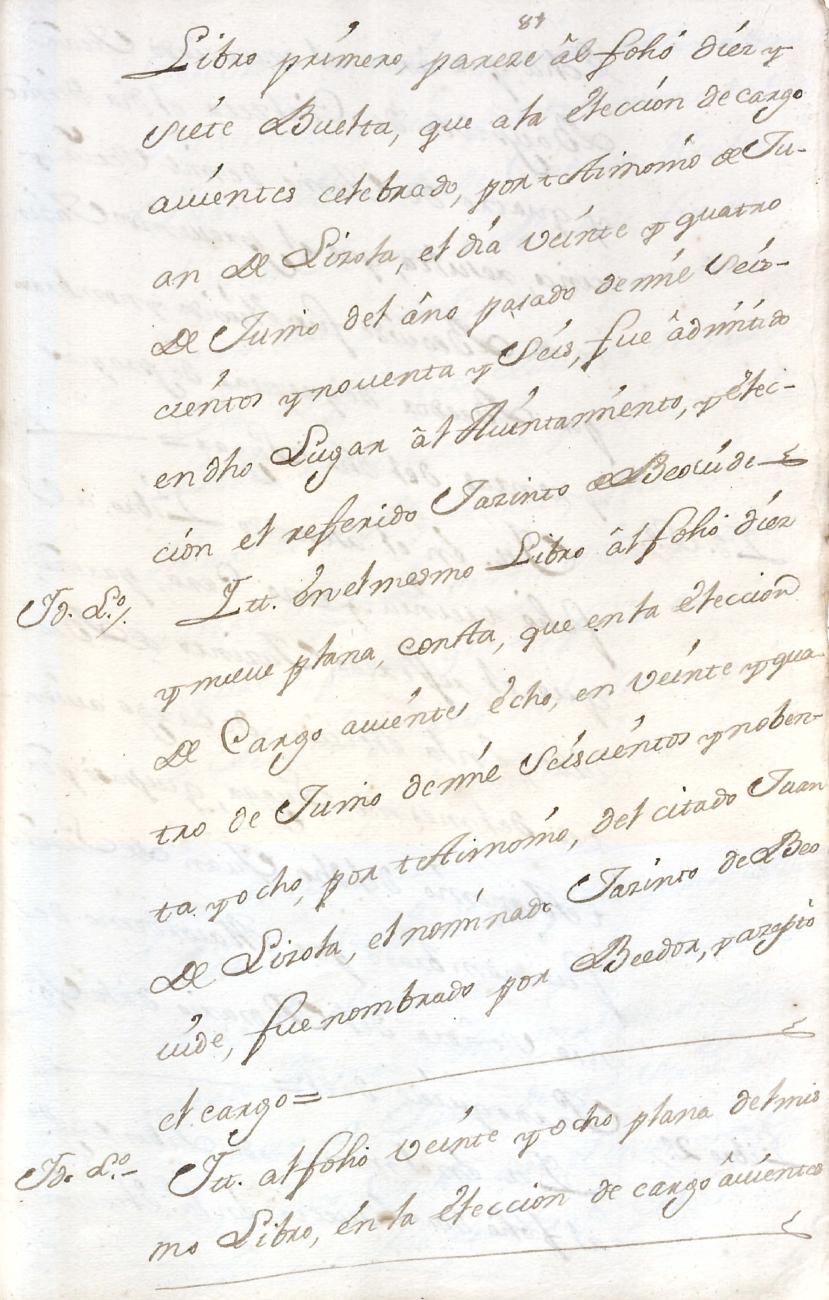 81
Libro primero, pareze âl folio diez y
siete Buelta, que a la elección de cargo
auientes celebrado, por testimonio de Ju-
an de Lizola, el día veinte y quatro
de Junio del año pasado de mil seis-
cientos y nouenta y seis, fue âdmitido
en dho Lugar âl Aiuntamiento, y elec-
ción el referido Jazinto de Beouide
Jd. Lº/. Itt. en el mesmo Libro âl folio diez
y nueue plana, consta, que en la elección
de Cargo auientes echo, en veinte y qua-
tro de Junio de mil seiscientos y noben-
ta y ocho, por testimonio, del citado Juan
de Lizola, el nominado Jazinto de Beo
uide, fue nombrado por Beedor, y azeptó
el cargo=
Jd. Lº- Itt. al folio veinte y ocho plana del mis
mo Libro, en la elección de cargo auientes